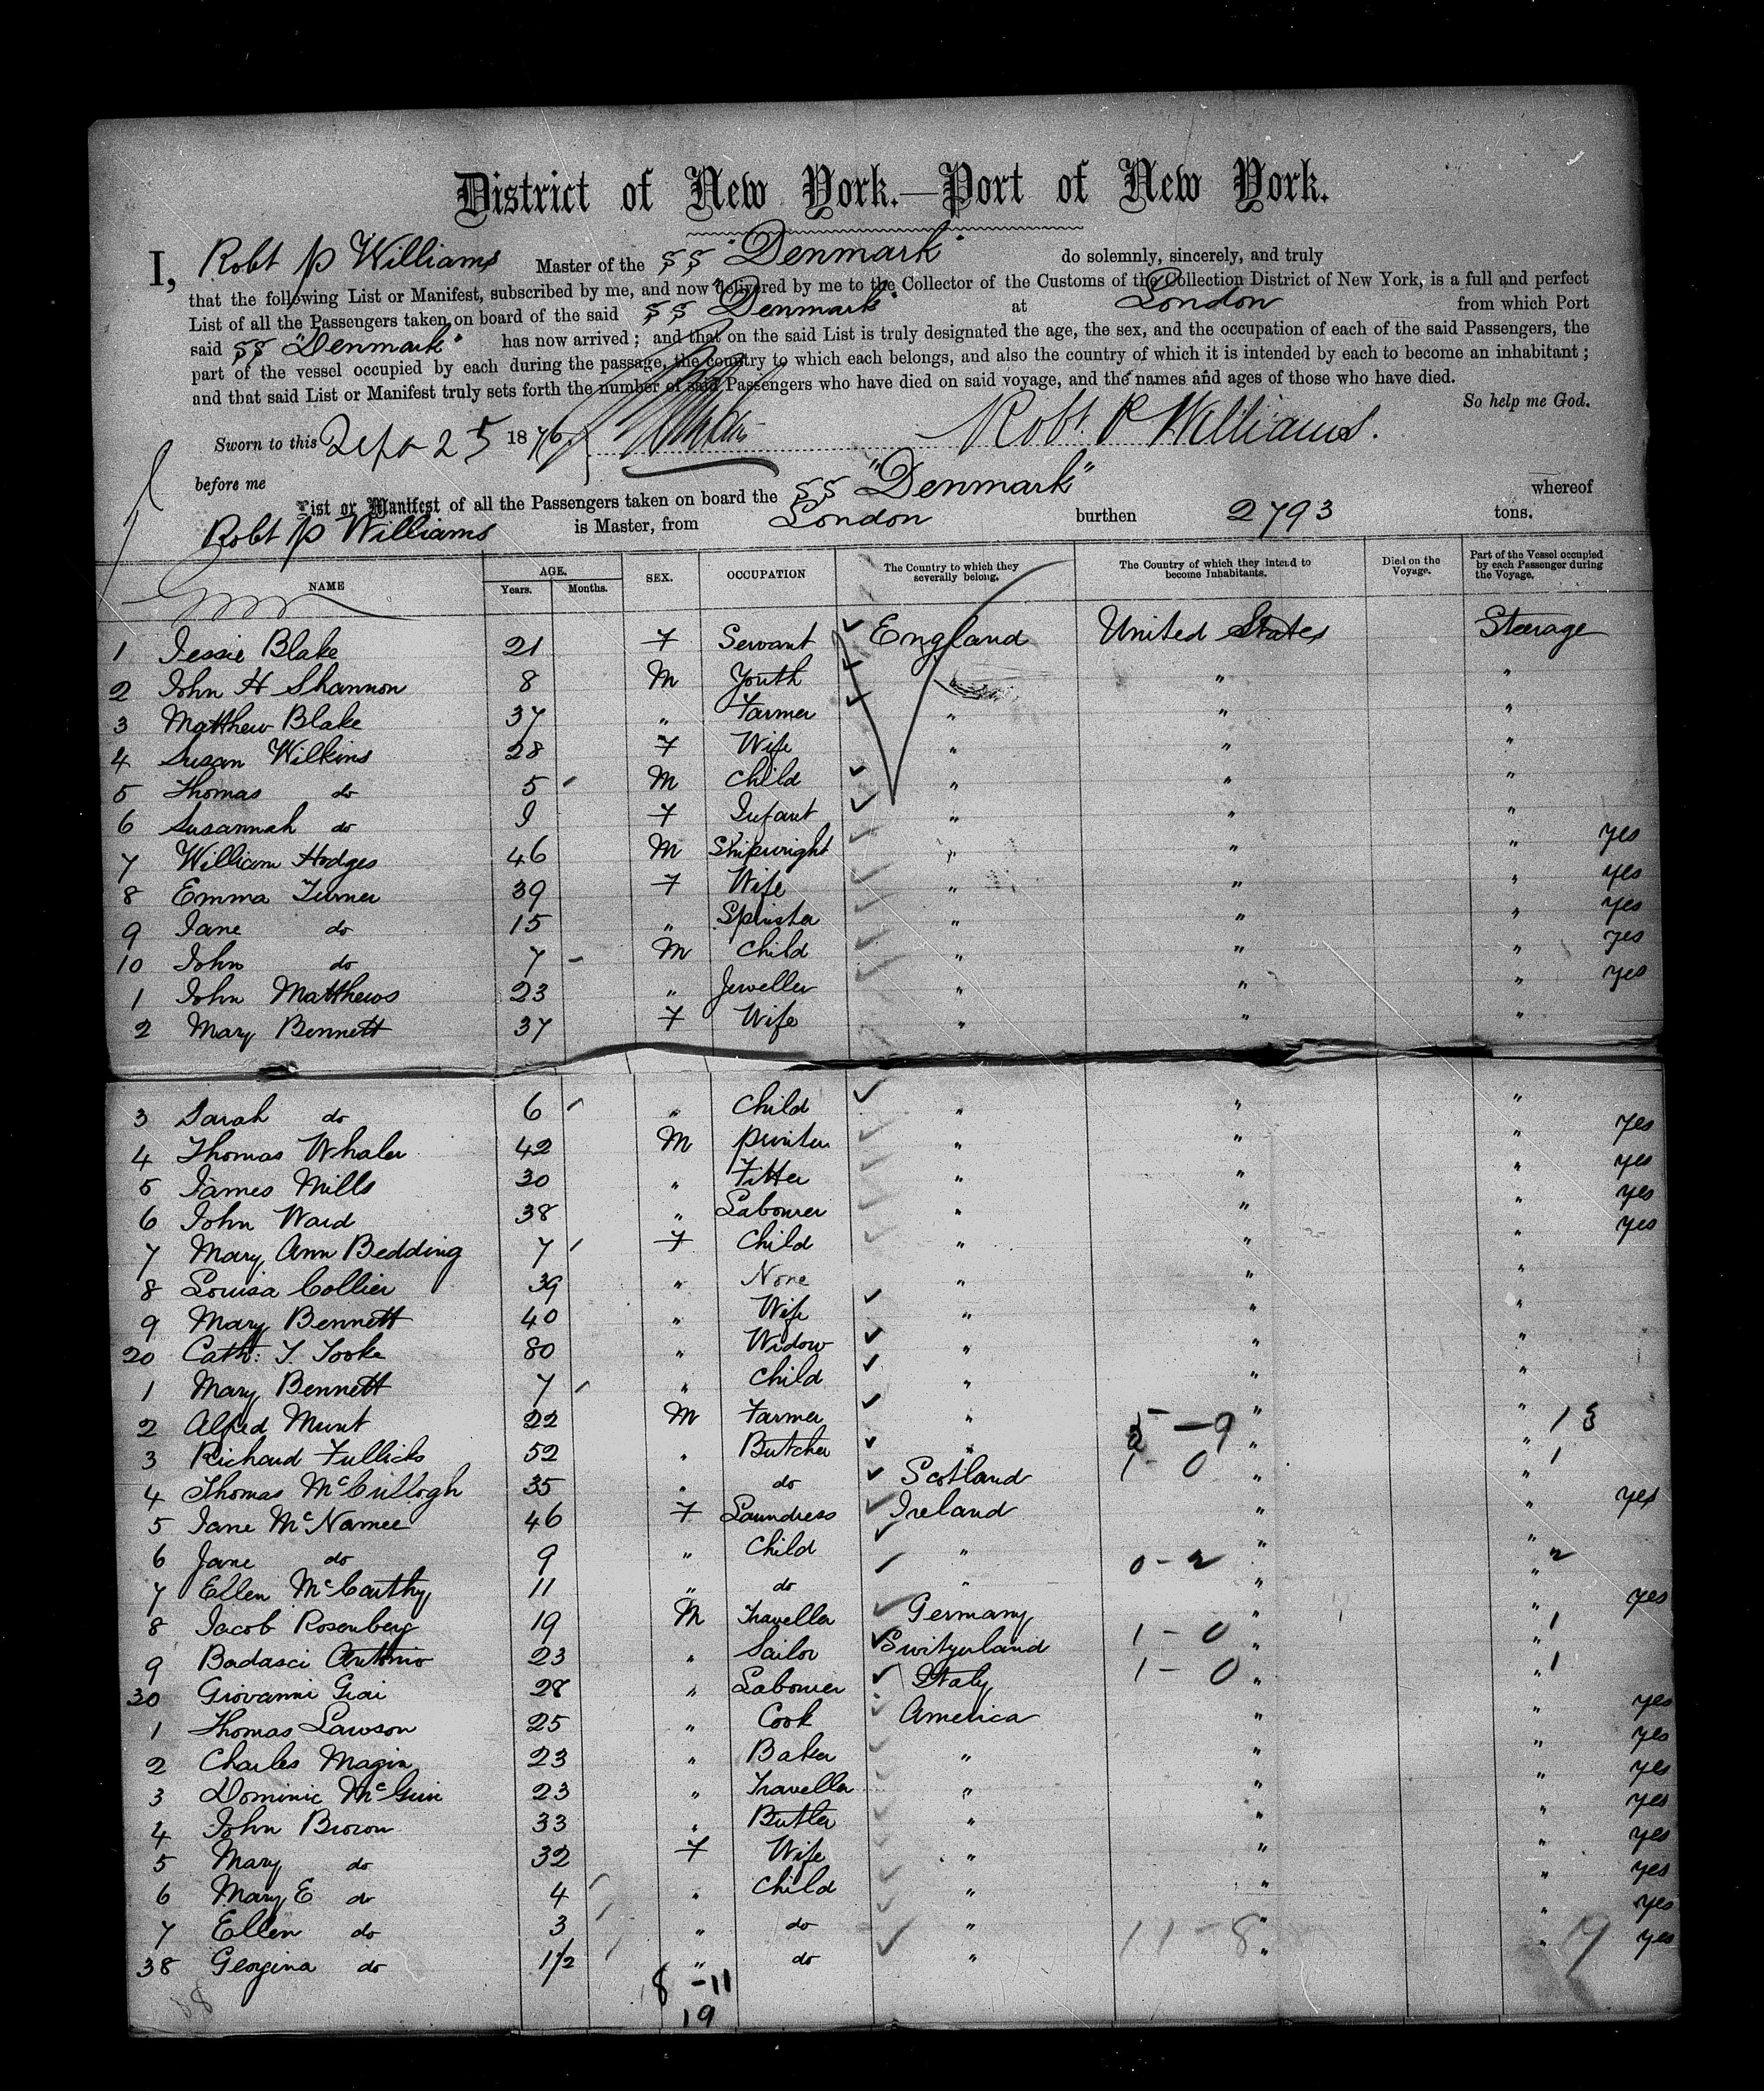 District of New York.—Port of New York.
I, Robt P Williams Master of the SS "Denmark" do solemnly, sincerely, and truly
that the following List or Manifest, subscribed by me, and now delivered by me to the Collector of the Customs of the Collection District of New York, is a full and perfect
List of all the Passengers taken on board of the said SS "Denmark" at London from which Port
said SS "Denmark" has now arrived; and that on the said List is truly designated the age, the sex, and the occupation of each of the said Passengers, the
part of the vessel occupied by each during the passage, the country to which each belongs, and also the country of which it is intended by each to become an inhabitant;
and that said List or Manifest truly sets forth the number of said Passengers who have died on said voyage, and the names and ages of those who have died.
So help me God.
Sworn to this Sept 25 1876 Robt. P Williams.
before me
List or Manifest of all the Passengers taken on board the SS "Denmark" whereof
Robt P Williams is Master, from London burthen 2793 tons.
NAME AGE. Years. Months. SEX. OCCUPATION The Country to which they severally belong. The Country of which they intend to become Inhabitants. Died on the Voyage. Part of the Vessel occupied by each Passenger during the Voyage.
1 Jessie Blake 21 F Servant England United States Steerage
2 John H Shannon 8 M Youth " "
3 Matthew Blake 37 " Farmer " " "
4 Susan Wilkins 28 F Wife " " "
5 Thomas do 5 M Child " " "
6 Susannah do F Infant " " "
7 William Hodges 46 M Shipwright " " " yes
8 Emma Turner 39 F Wife " " " yes
9 Jane do 15 " Spinster " " " yes
10 John do 7 M Child " " " yes
1 John Matthews 23 " Jeweller " " " yes
2 Mary Bennett 37 F Wife " " "
3 Sarah do 6 " Child " " "
4 Thomas Whaler 42 M Printer " " " yes
5 James Mills 30 " Fitter " " " yes
6 John Ward 38 " Labourer " " " yes
7 Mary Ann Bedding 7 F Child " " " yes
8 Louisa Collier 39 " None " " "
9 Mary Bennett 40 " Wife " " "
20 Cath: T. Tooke 80 " Widow " " "
1 Mary Bennett 7 " Child " " "
2 Alfred Munt 22 M Farmer " " "
3 Richard Fullicks 52 " Butcher " - 9 " "
4 Thomas McCullogh 35 " do Scotland 1 - 0 " " 1
5 Jane McNamee 46 F Laundress Ireland " " yes
6 Jane do 9 " Child " " "
7 Ellen McCarthy 11 " do " 0 - 2 " " 2
8 Jacob Rosenberg 19 M Traveller Germany " " yes
9 Badasci Antonio 23 " Sailor Switzerland 1 - 0 " " 1
30 Giovanni Giai 28 " Labourer Italy 1 - 0 " " 1
1 Thomas Lawson 25 " Cook America " " yes
2 Charles Magin 23 " Baker " " " yes
3 Dominic McGuin 23 " Traveller " " " yes
4 John Brown 33 " Butler " " " yes
5 Mary do 32 F Wife " " " yes
6 Mary E do 4 " Child " " " yes
7 Ellen do 3 " do " " " yes
38 Georgina do 1½ " do " 11 - 8 " " yes
8 - 11
19